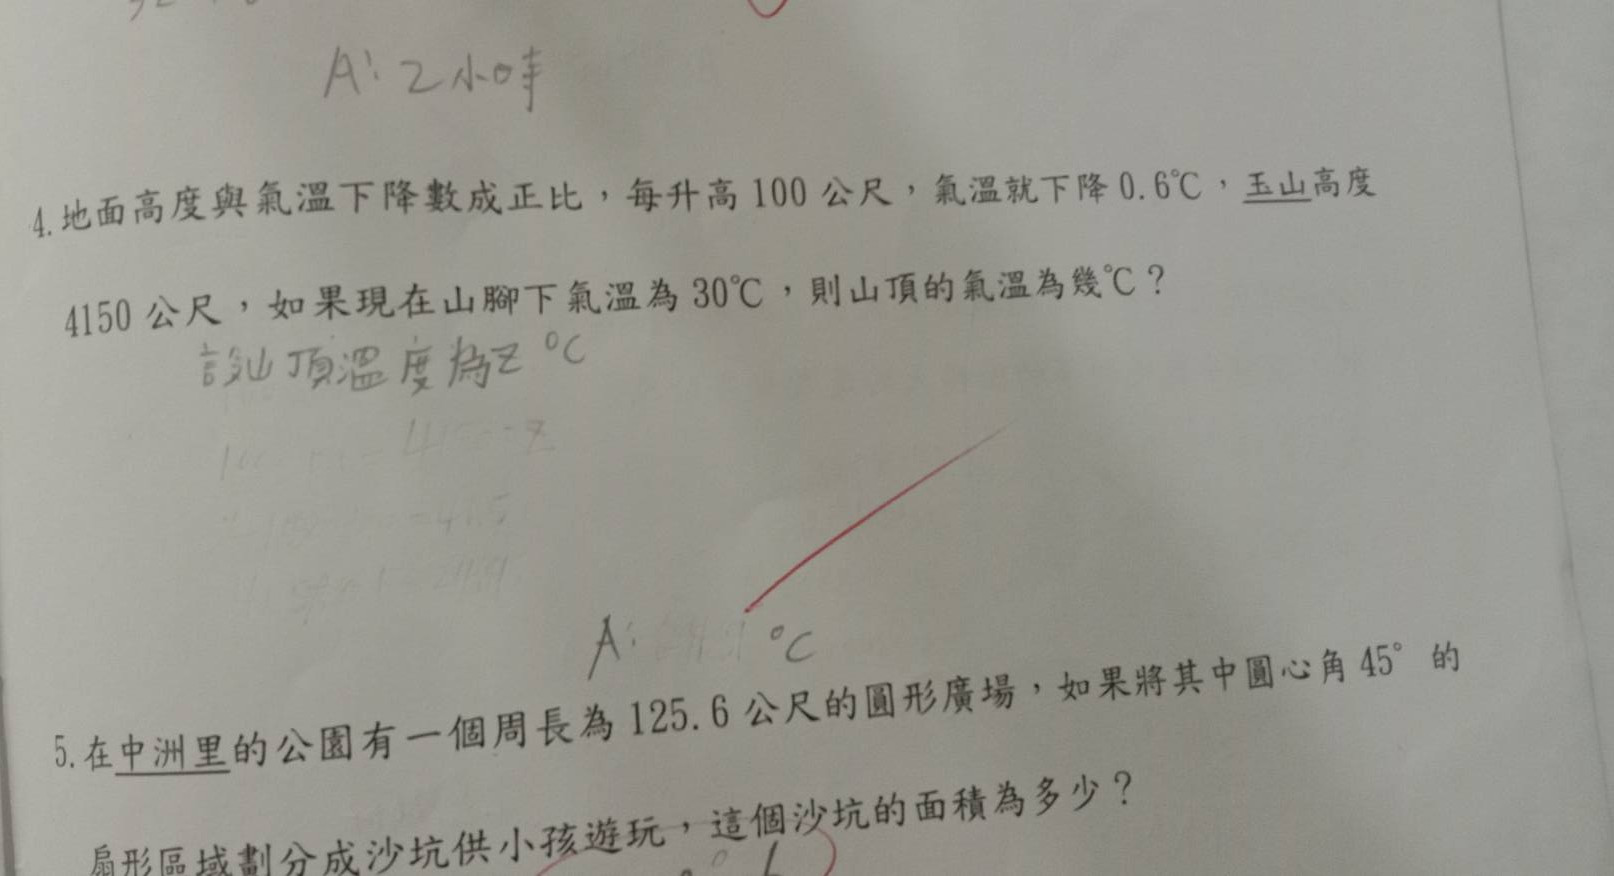 A: 2小時
4.地面高度與氣溫下降數成正比，每升高100公尺，氣溫就下降0.6℃，玉山高度
4150公尺，如果現在山腳下氣溫為30℃，則山頂的氣溫為幾℃？
設山頂溫度為Z °C
A: °C
5.在中洲里的公園有一個周長為125.6公尺的圓形廣場，如果將其中圓心角45°的
扇形區域劃分成沙坑供小孩遊玩，這個沙坑的面積為多少？